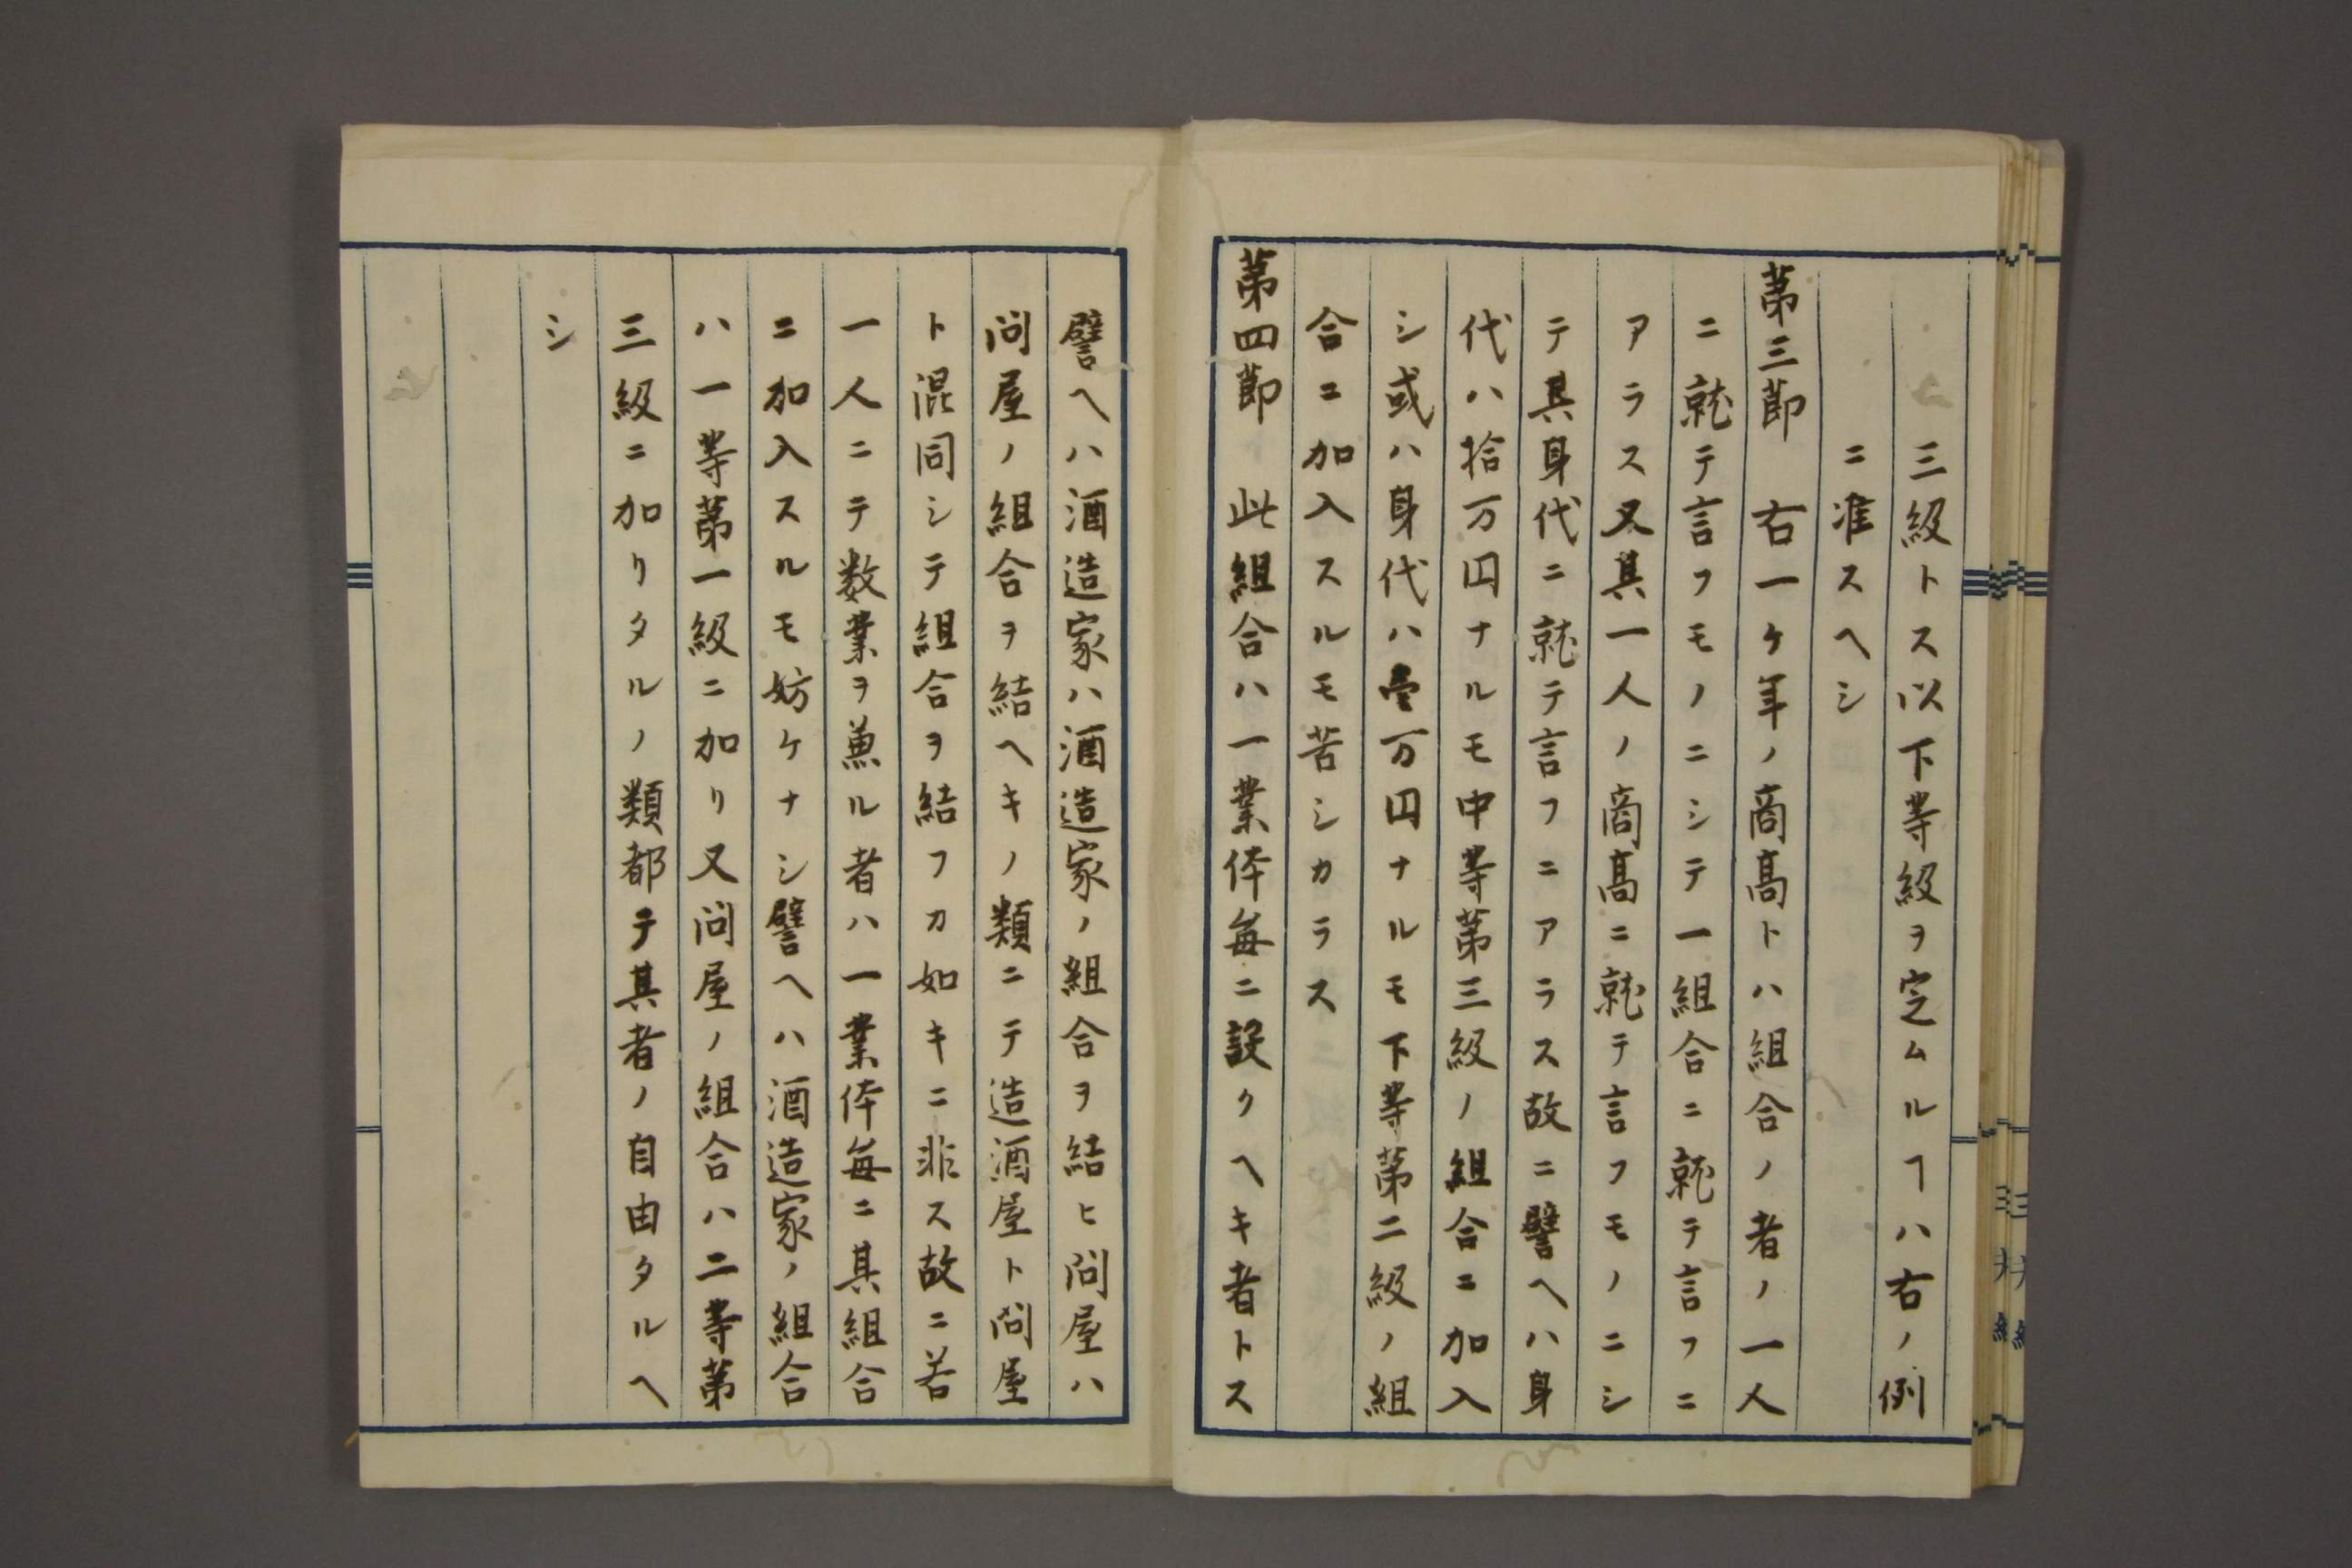 三級トス以下等級ヲ定ムルヿハ右ノ例
ニ准スヘシ
第三節　右一ケ年ノ商髙トハ組合ノ者ノ一人
ニ就テ言フモノニシテ一組合ニ就テ言フニ
アラス又其一人ノ商髙ニ就テ言フモノニシ
テ其身代ニ就テ言フニアラス故ニ譬ヘハ身
代ハ拾万円ナルモ中等第三級ノ組合ニ加入
シ或ハ身代ハ壱万円ナルモ下等第二級ノ組
合ニ加入スルモ苦シカラス
第四節　此組合ハ一業体毎ニ設クヘキ者トス
譬ヘハ酒造家ハ酒造家ノ組合ヲ結ヒ問屋ハ
問屋ノ組合ヲ結ヘキノ類ニテ造酒屋ト問屋
ト混同シテ組合ヲ結フカ如キニ非ス故ニ若
一人ニテ数業ヲ兼ル者ハ一業体毎ニ其組合
ニ加入スルモ妨ケナシ譬ヘハ酒造家ノ組合
ハ一等第一級ニ加リ又問屋ノ組合ハ二等第
三級ニ加リタルノ類都テ其者ノ自由タルヘ
シ